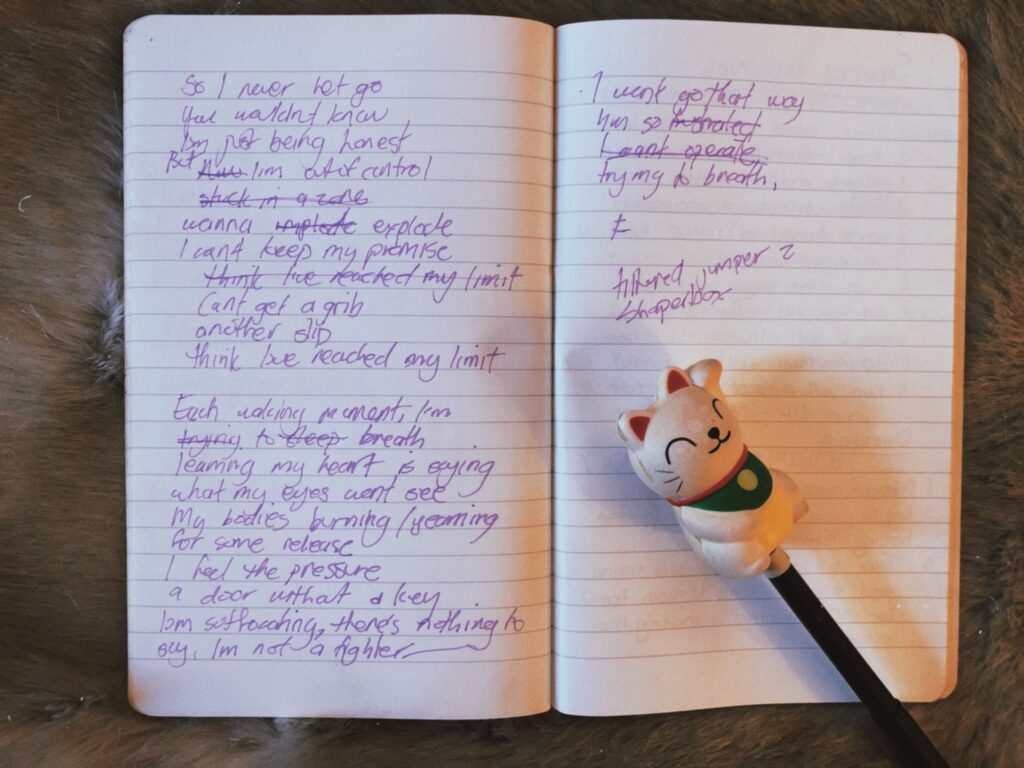 So I never let go
You wouldnt know
I'm just being honest
But Now I'm out of control
stuck in a zone
wanna implode explode
I cant keep my promise
think I've reached my limit
Cant get a grib
another slip
think I've reached my limit
Each waking moment, I'm
trying to sleep breath
learning my heart is saying
what my eyes wont see
My bodies burning/yearning
for some release
I feel the pressure
a door without a key
I'm suffocating, there's nothing to
say, I'm not a fighter
I wont go that way
I'm so frustrated
I cant operate
trying to breath,
filtered jumper 2
shaperbox